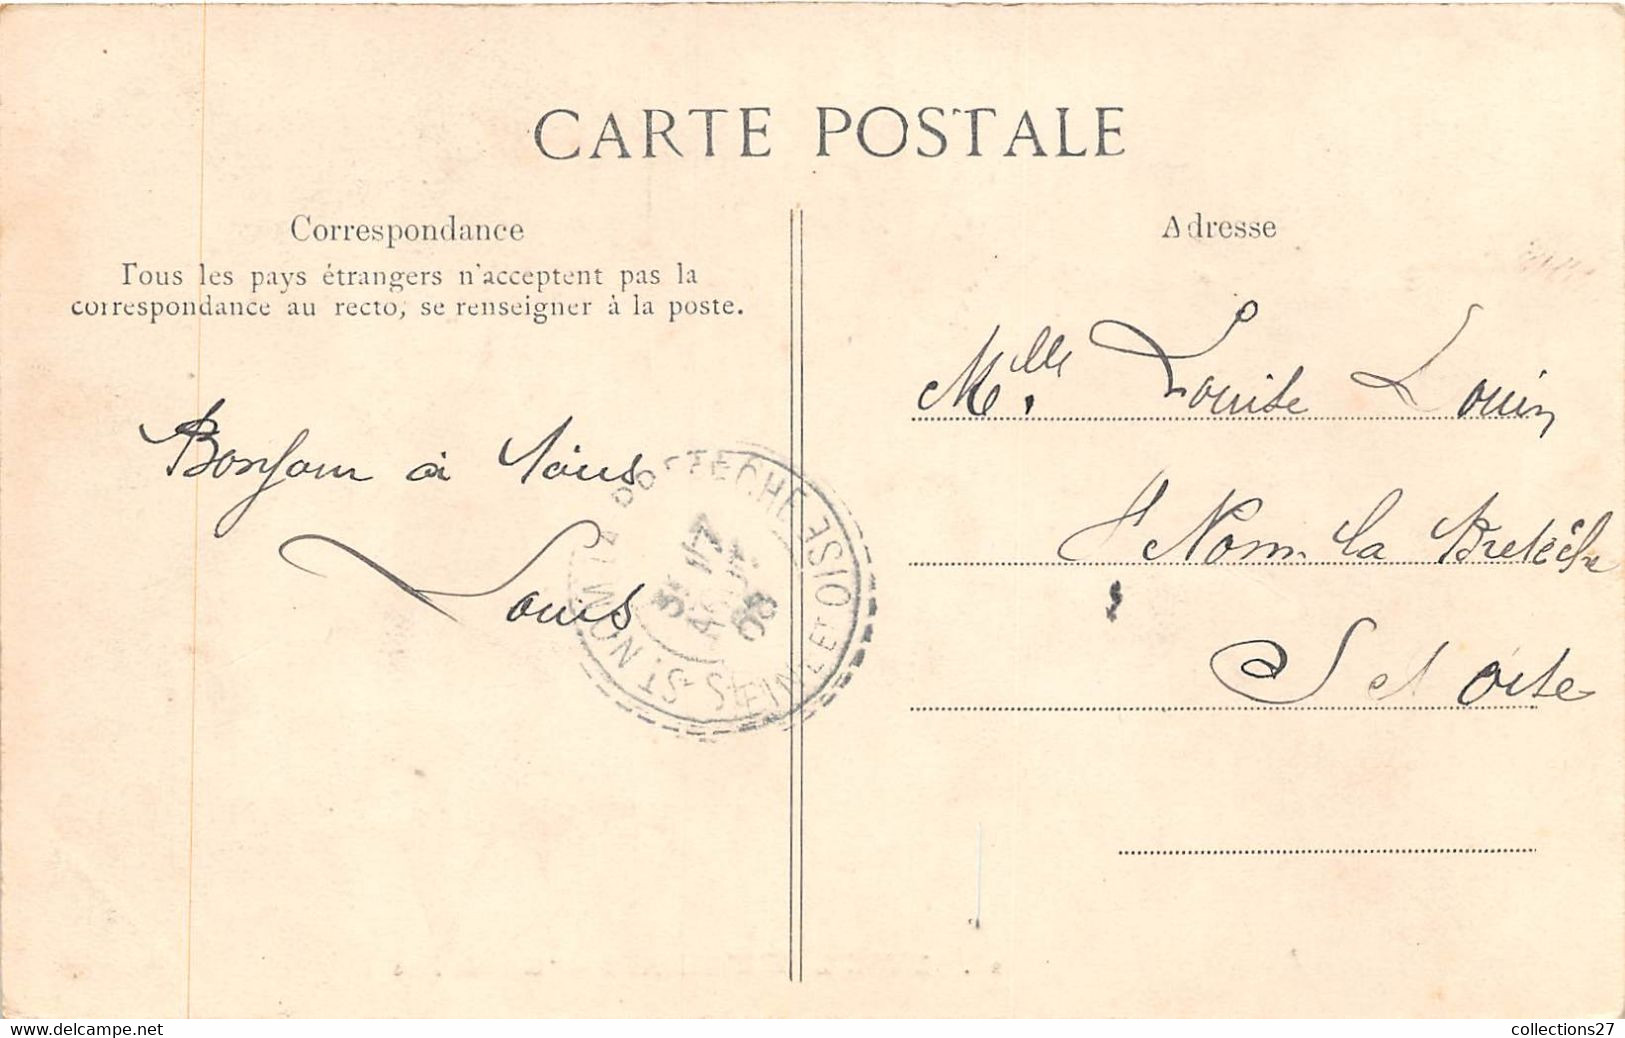 CARTE POSTALE
Correspondance
Tous les pays étrangers n'acceptent pas la
correspondance au recto, se renseigner à la poste.
Adresse
Bonjour à tous
Louis
Mlle. Louise Louin
St Nom la Bretèche
S et Oise
ST NOM LA BRETECHE
SEINE ET OISE
17
AOUT
08
www.delcampe.net
collections27